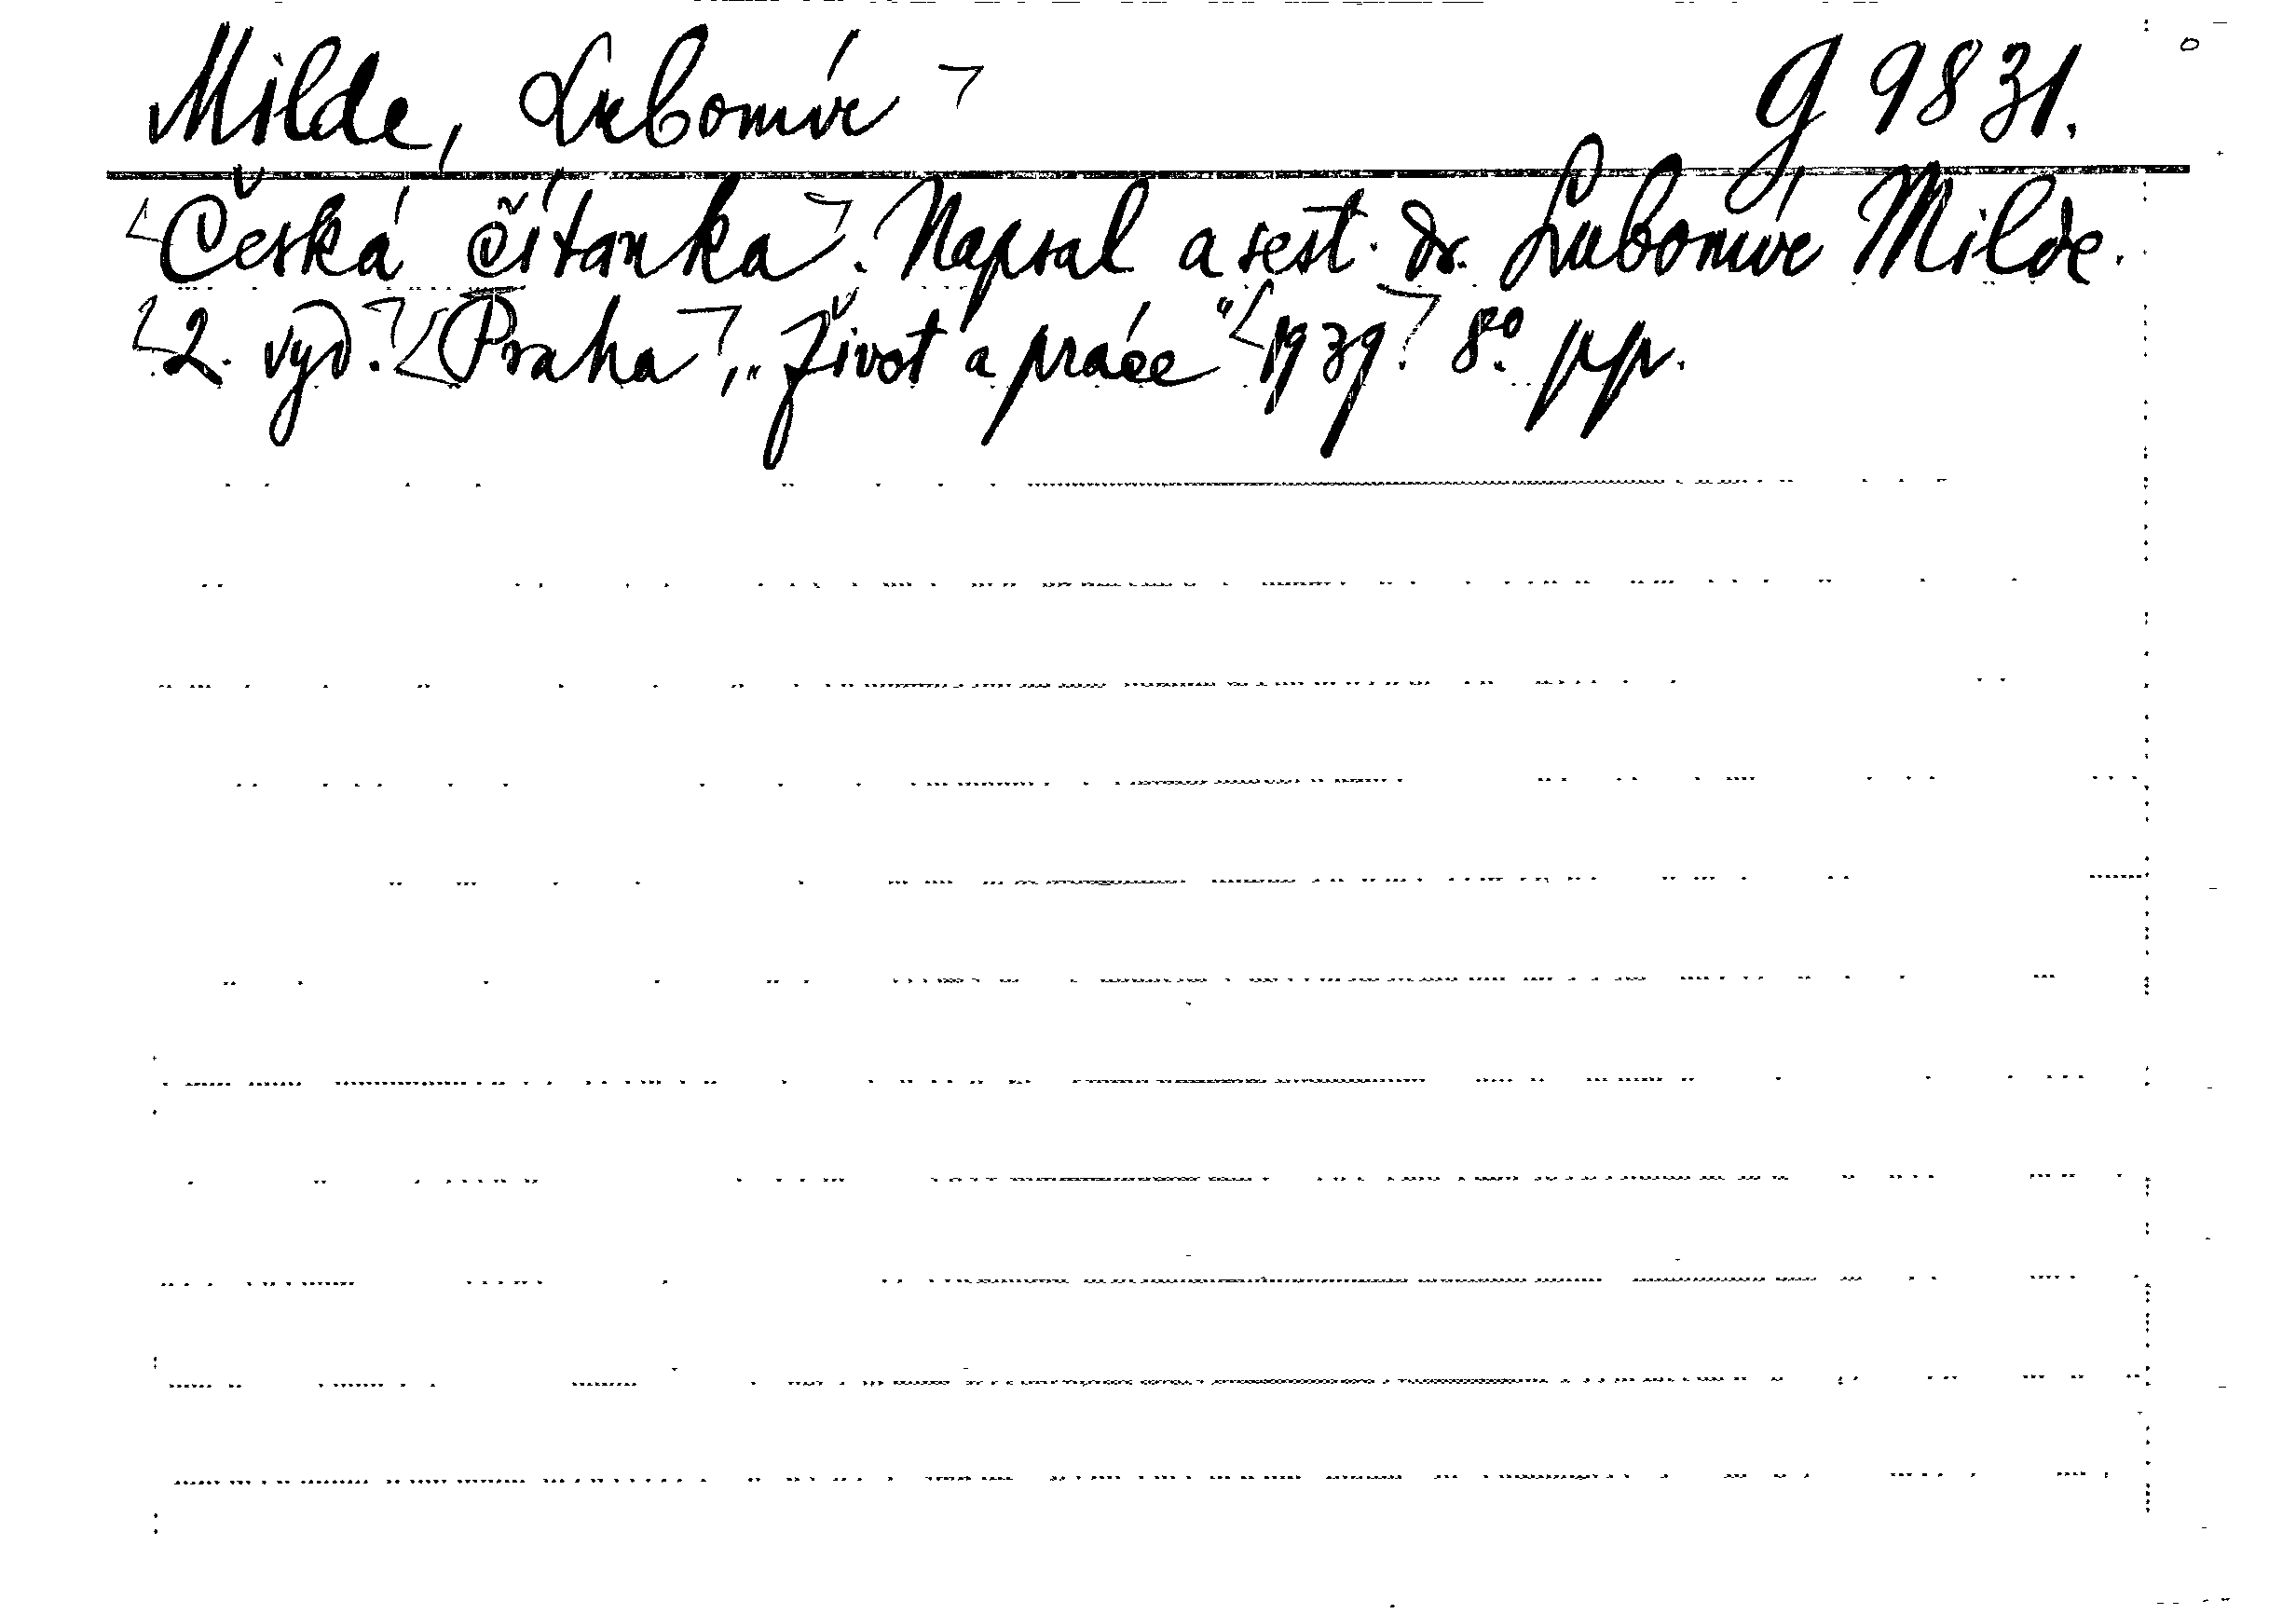 Milde, Lubomír ⌝ G 9831.
⌞Česká čítanka⌝. Napsal a sest. dr. Lubomír Milde.
⌞2. vyd.⌝ ⌞Praha⌝, „Život a práce" ⌞1939.⌝ 8º. pp.